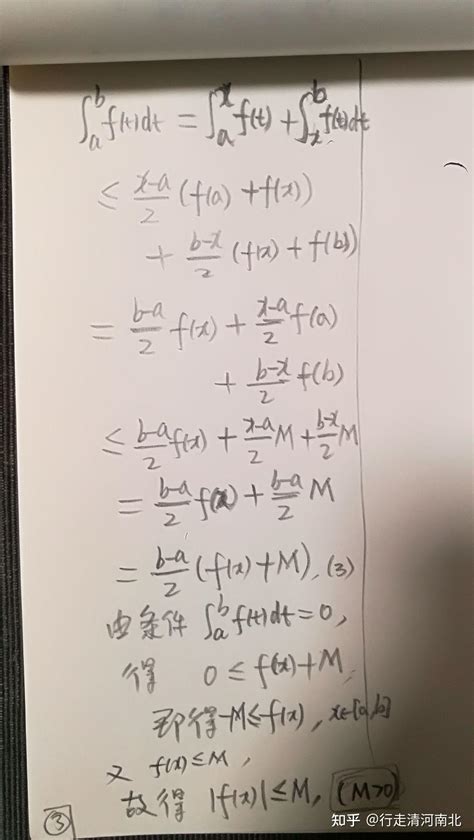 ∫_a^b f(t)dt = ∫_a^x f(t) + ∫_x^b f(t)dt
≤ (x-a)/2 (f(a) + f(x))
+ (b-x)/2 (f(x) + f(b))
= (b-a)/2 f(x) + (x-a)/2 f(a)
+ (b-x)/2 f(b)
≤ (b-a)/2 f(x) + (x-a)/2 M + (b-x)/2 M
= (b-a)/2 f(x) + (b-a)/2 M
= (b-a)/2 (f(x) + M), (3)
由条件 ∫_a^b f(t)dt = 0,
得 0 ≤ f(x) + M,
即得 -M ≤ f(x), x∈[a,b]
又 f(x) ≤ M,
故得 |f(x)| ≤ M, (M>0)
③
知乎 @行走清河南北